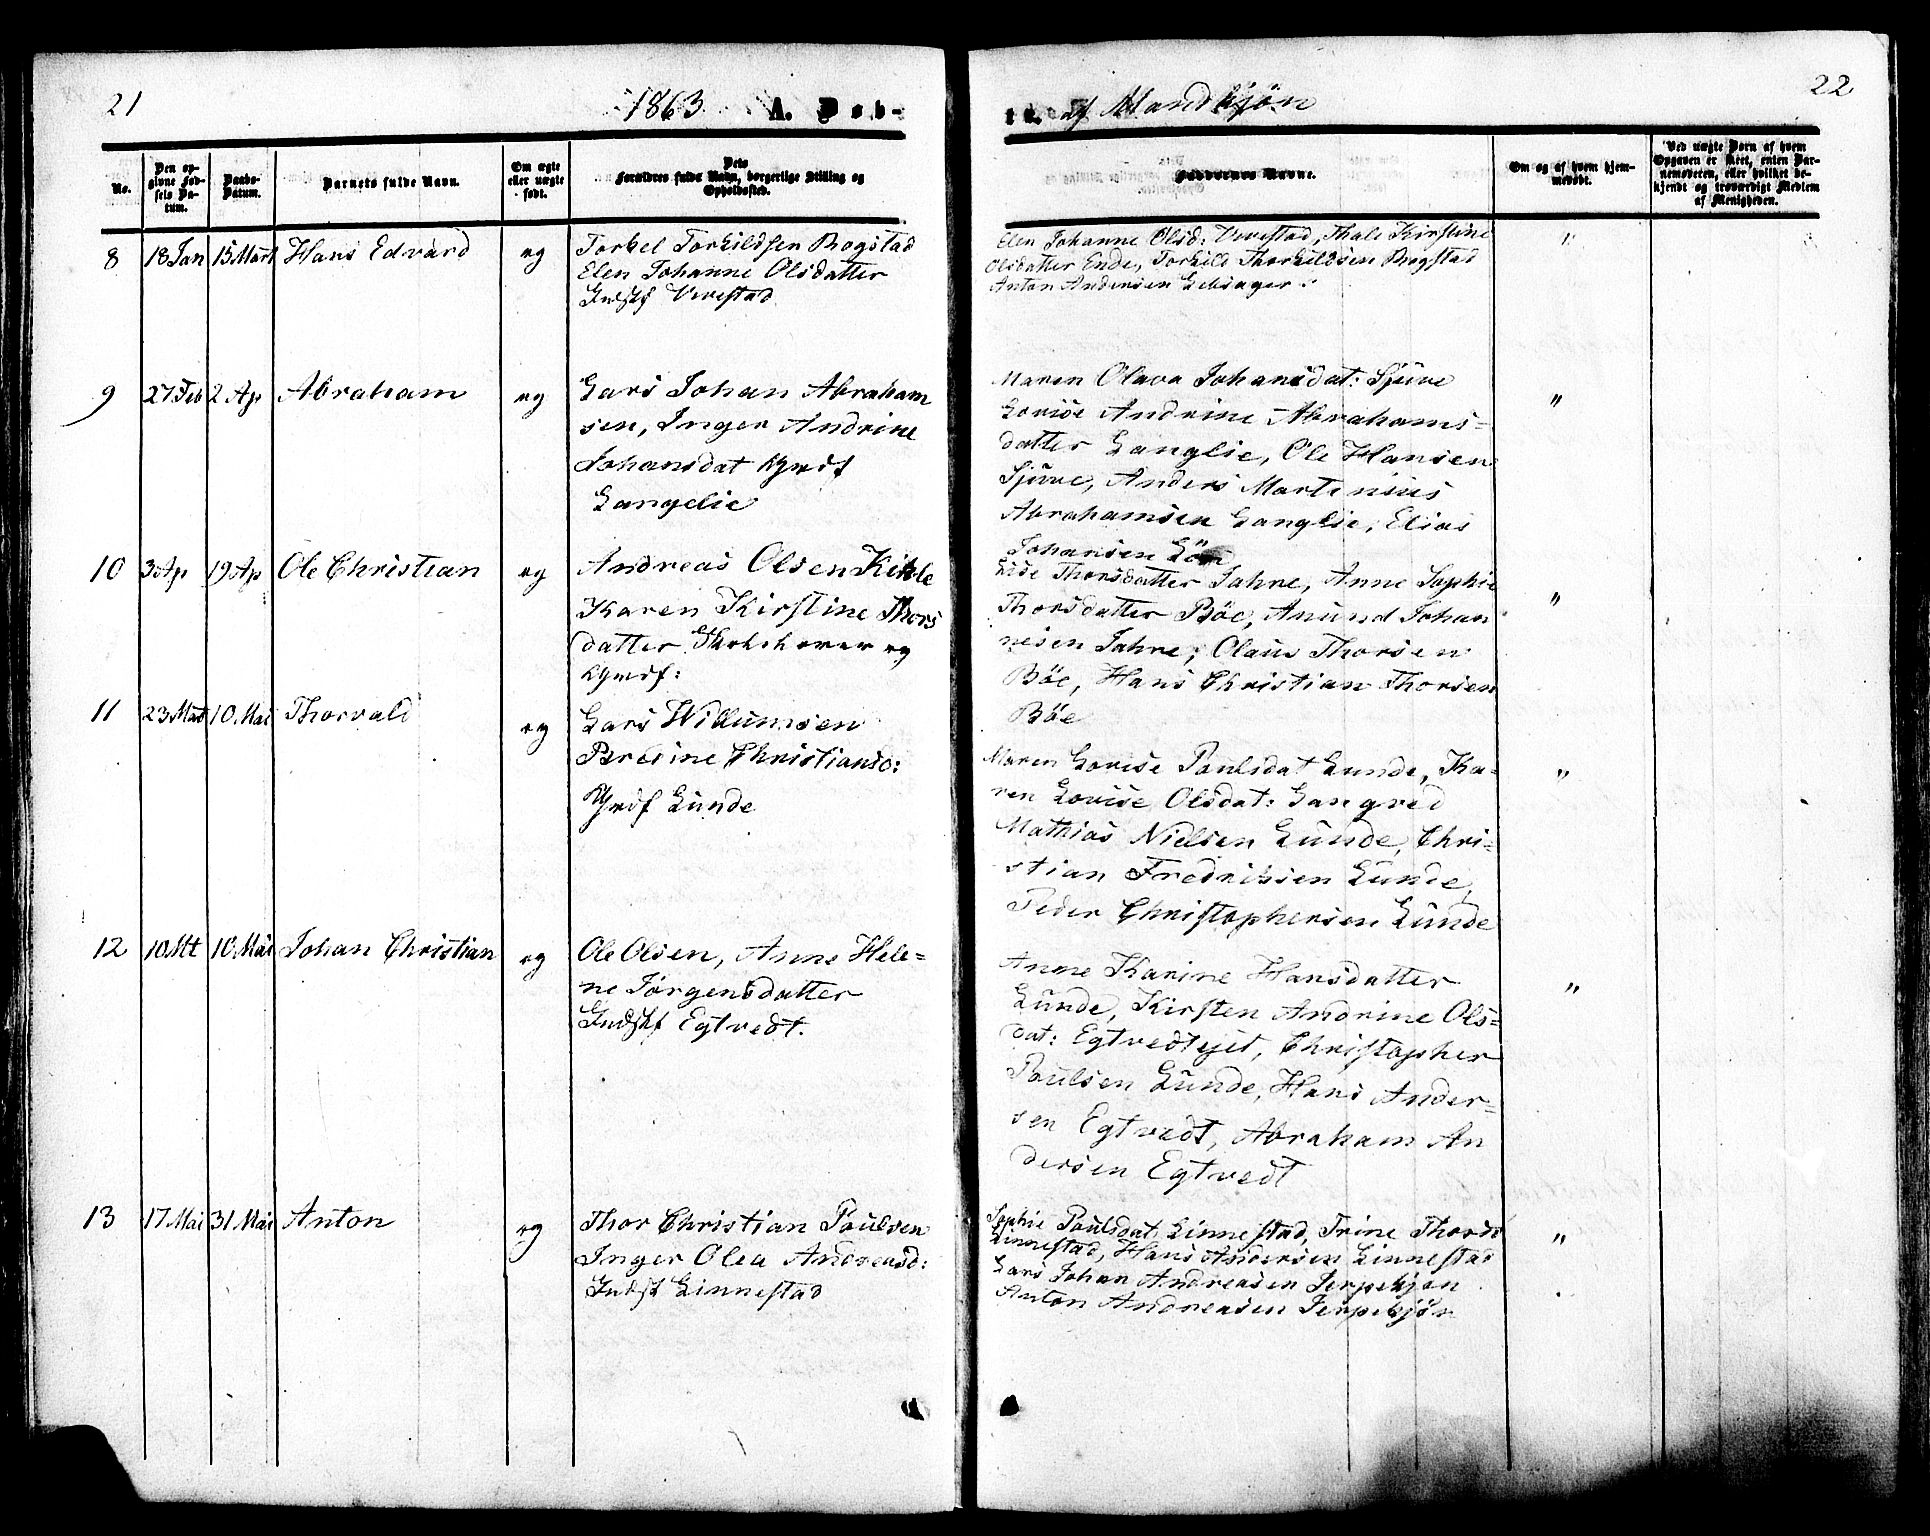 21
1863 A. Døb-
te. af Mandkjøn
22
No.
Den op-
givne Fød-
sels Da-
tum.
Daabs-
Datum.
Barnets fulde Navn.
Om ægte
eller uægte
født.
Dets
Forældres fulde Navn, borgerlige Stilling og
Opholdssted.
Faddernes Navne.
Om og af hvem hjem-
medøbt.
Ved uægte Børn af hvem
Opgaven er skeet, enten Bar-
nemoderen, eller hvilket be-
kjendt og troværdigt Medlem
af Menigheden.
8 18 Jan 15 Mart Hans Edvard eg
Torkel Torkildsen Rogstad
Elen Johanne Olsdatter
Indst Virestad
Elen Johanne Olsd: Virestad, Thale Kirstine
Olsdatter Ende, Torkild Thorkildsen Rogstad
Anton Andersen
"
9 27 Feb 2 Ap Abraham eg
Lars Johan Abraham
sen, Inger Andrine
Johansdat Gmdf
Langelie
Maren Olava Johansdat: Sjüve
Lovise Andrine Abrahams=
datter Langlie, Ole Hansen
Sjüve, Anders Martinius
Abrahamsen Langlie, Elias
Johansen
"
10 3 Ap 19 Ap Ole Christian eg
Andreas Olsen Kihle
Karen Kirstine Thors
datter Skoleholder og
Gmdf:
Lise Thorsdatter Jahre, Anne Sophie
Thorsdatter Böe, Anund Johan
nesen Jahre, Olaus Thorsen
Böe, Hans Christian Thorsen
Böe
"
11 23 Mart 10 Mai Thorvald eg
Lars Willumsen
Bredine Christiansd:
Gmdf Lunde
Maren Lovise Poulsdat Lunde, Ka-
ren Lovise Olsdat: Langved
Mathias Nielsen Lunde, Chri=
stian Fredriksen Lunde,
Peder Christophersen Lunde
"
12 10 Mt 10 Mai Johan Christian eg
Ole Olsen, Anne Hele=
ne Jørgensdatter
Indst Egtvedt.
Anne Karine Hansdatter
Lunde, Kirsten Andrine Ols=
dat: Egtvedtejet, Christopher
Poulsen Lunde, Hans Ander=
sen Egtvedt, Abraham An
dersen Egtvedt
"
13 17 Mai 31 Mai Anton eg
Thor Christian Poulsen
Inger Olea Andreasd:
Indst Linnestad
Sophie Poulsdat Linnestad, Trine Thorsd
Linnestad, Hans Andersen Linnestad
Lars Johan Andreasen Jerpekjøn
Anton Andreasen Jerpekjøn
"